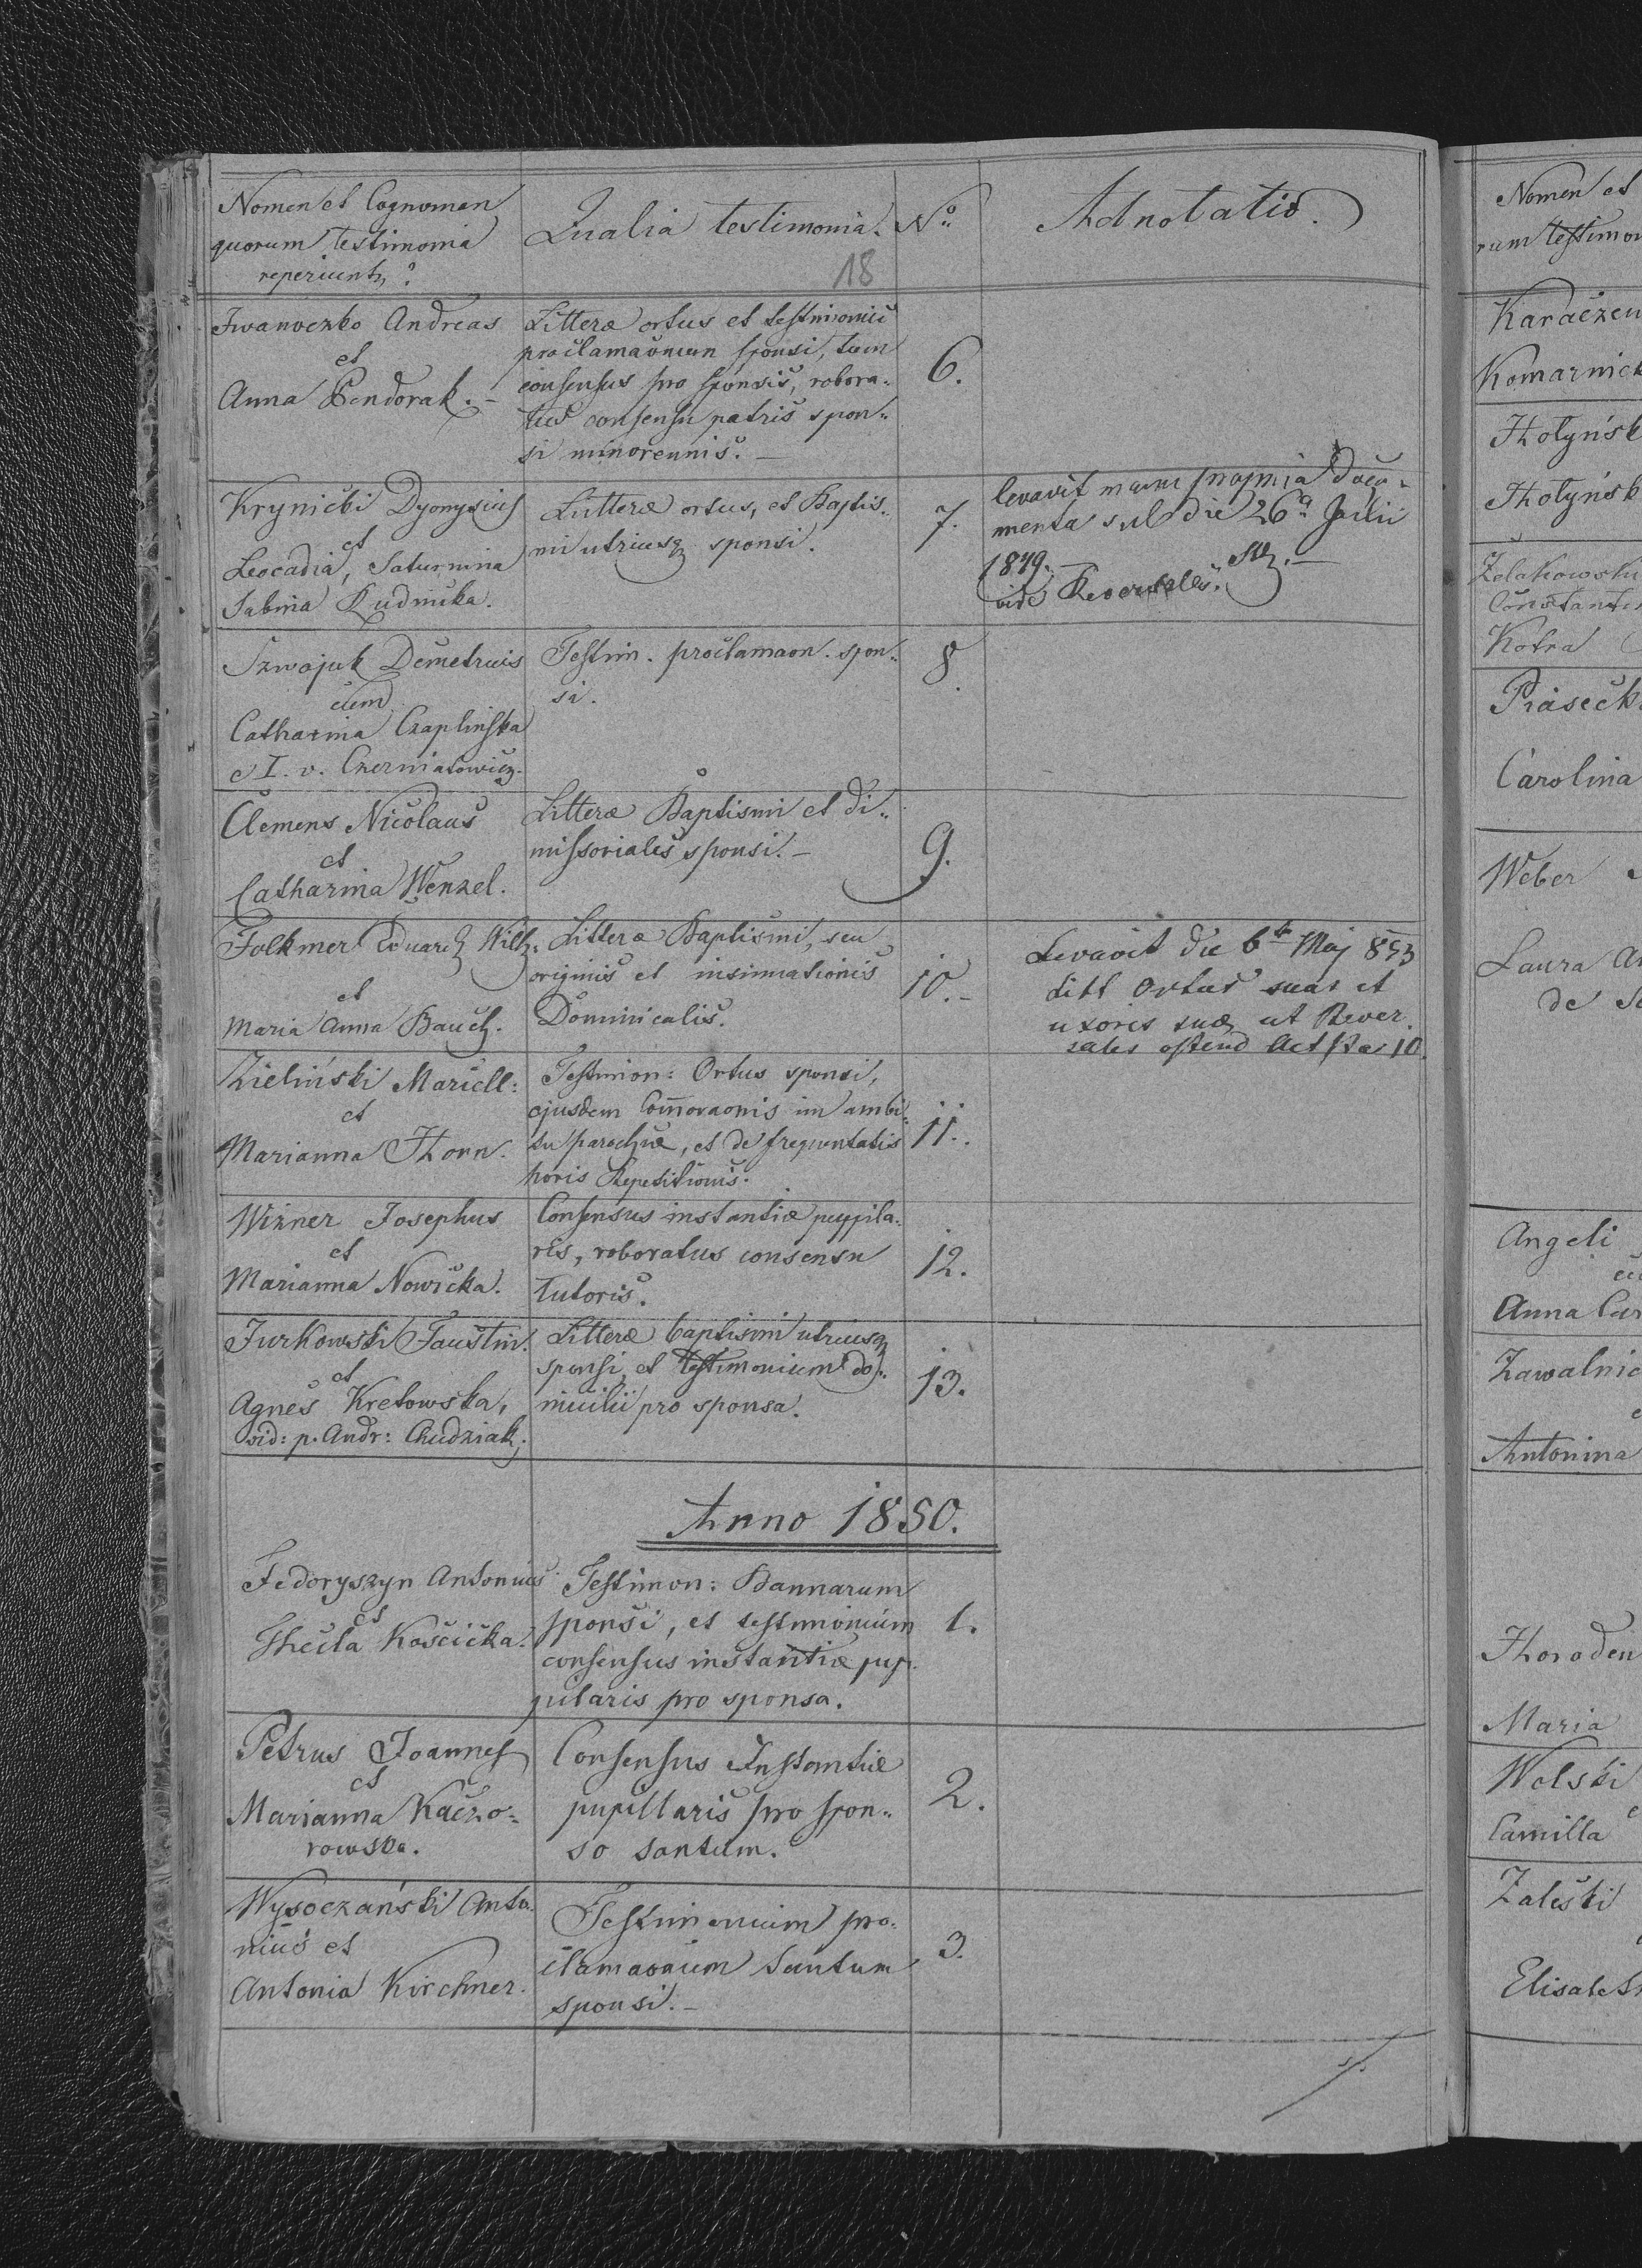 Nomen et Cognomen
quorum testimonia
reperiuntz ?
Qualia testimonia.
18
No
Adnotatio.
Iwanoczko Andreas
et
Anna Bendorak. -
Litteræ ortus et testimonii
proclamaonum sponsi, tum
consensus pro sponsis, robora-
tus consensu patris spon-
si minorennis. -
6.
Krynicki Dyonysius
et
Leocadia, Saturnina
Sabina Rudnicka.
Litteræ ortus, et Baptis-
mi utriusq sponsi.
7.
levavit manu propria docu-
menta sub die 26a Julii
1879.
vide Reversales.
Szwajuk Demetrius
cum
Catharina Czaplinska
e I. v. Czerniatowicz.
Testim. proclamaon. spon-
si.
8.
Clemens Nicolaus
et
Catharina Wenzel.
Litteræ Baptismi et di-
missoriales sponsi. -
9.
Folkmer Eduard Wilh:
et
Maria Anna Bauch.
Litteræ Baptismi, seu
originis et insinuationis
Dominicalis.
10. -
Levavit die 6ta Maj 853
Litt Ortus suas et
uxoris suæ ut Rever
sales ostend Act 10.
Zieliński Maricll:
et
Marianna Horn.
Testimon: Ortus sponsi,
ejusdem Com̄oraonis in ambi-
tu parochiæ, et de frequentatis
horis Repetitionis.
11.
Wizner Josephus
et
Marianna Nowicka.
Consensus instantiæ puppila-
ris, roboratus consensu
tutoris.
12.
Jurkowski Faustin.
et
Agnes Kretowska,
vid: p. Andr: Chudziak.
Litteræ baptismi utriusq
sponsi, et testimonium do-
micilii pro sponsa.
13.
Anno 1850.
Fedoryszyn Antonius
et
Thecla Kościcka.
Testimon: Bannarum
sponsi, et testimonium
consensus instantiæ pup-
pilaris pro sponsa.
1.
Petrus Joannes
et
Marianna Kaczo-
rowska.
Consensus Instantiæ
pupillaris pro spon-
so tantum.
2.
Wysoczański Anto-
nius et
Antonia Kirchner.
Testimonium pro-
clamaonum tantum
sponsi. -
3.
Nomen et
rum testimon
Karaczew
Komarnick
Hołyńsk
Hołyńsk
Żelakowski
Constantin
Kotra
Piaseck
Carolina
Weber
Laura An
de
Angeli
cu
Anna Car
Zawalnic
Antonina
Horoden
Maria
Wolski
Camilla
Zaleski
Elisabeth